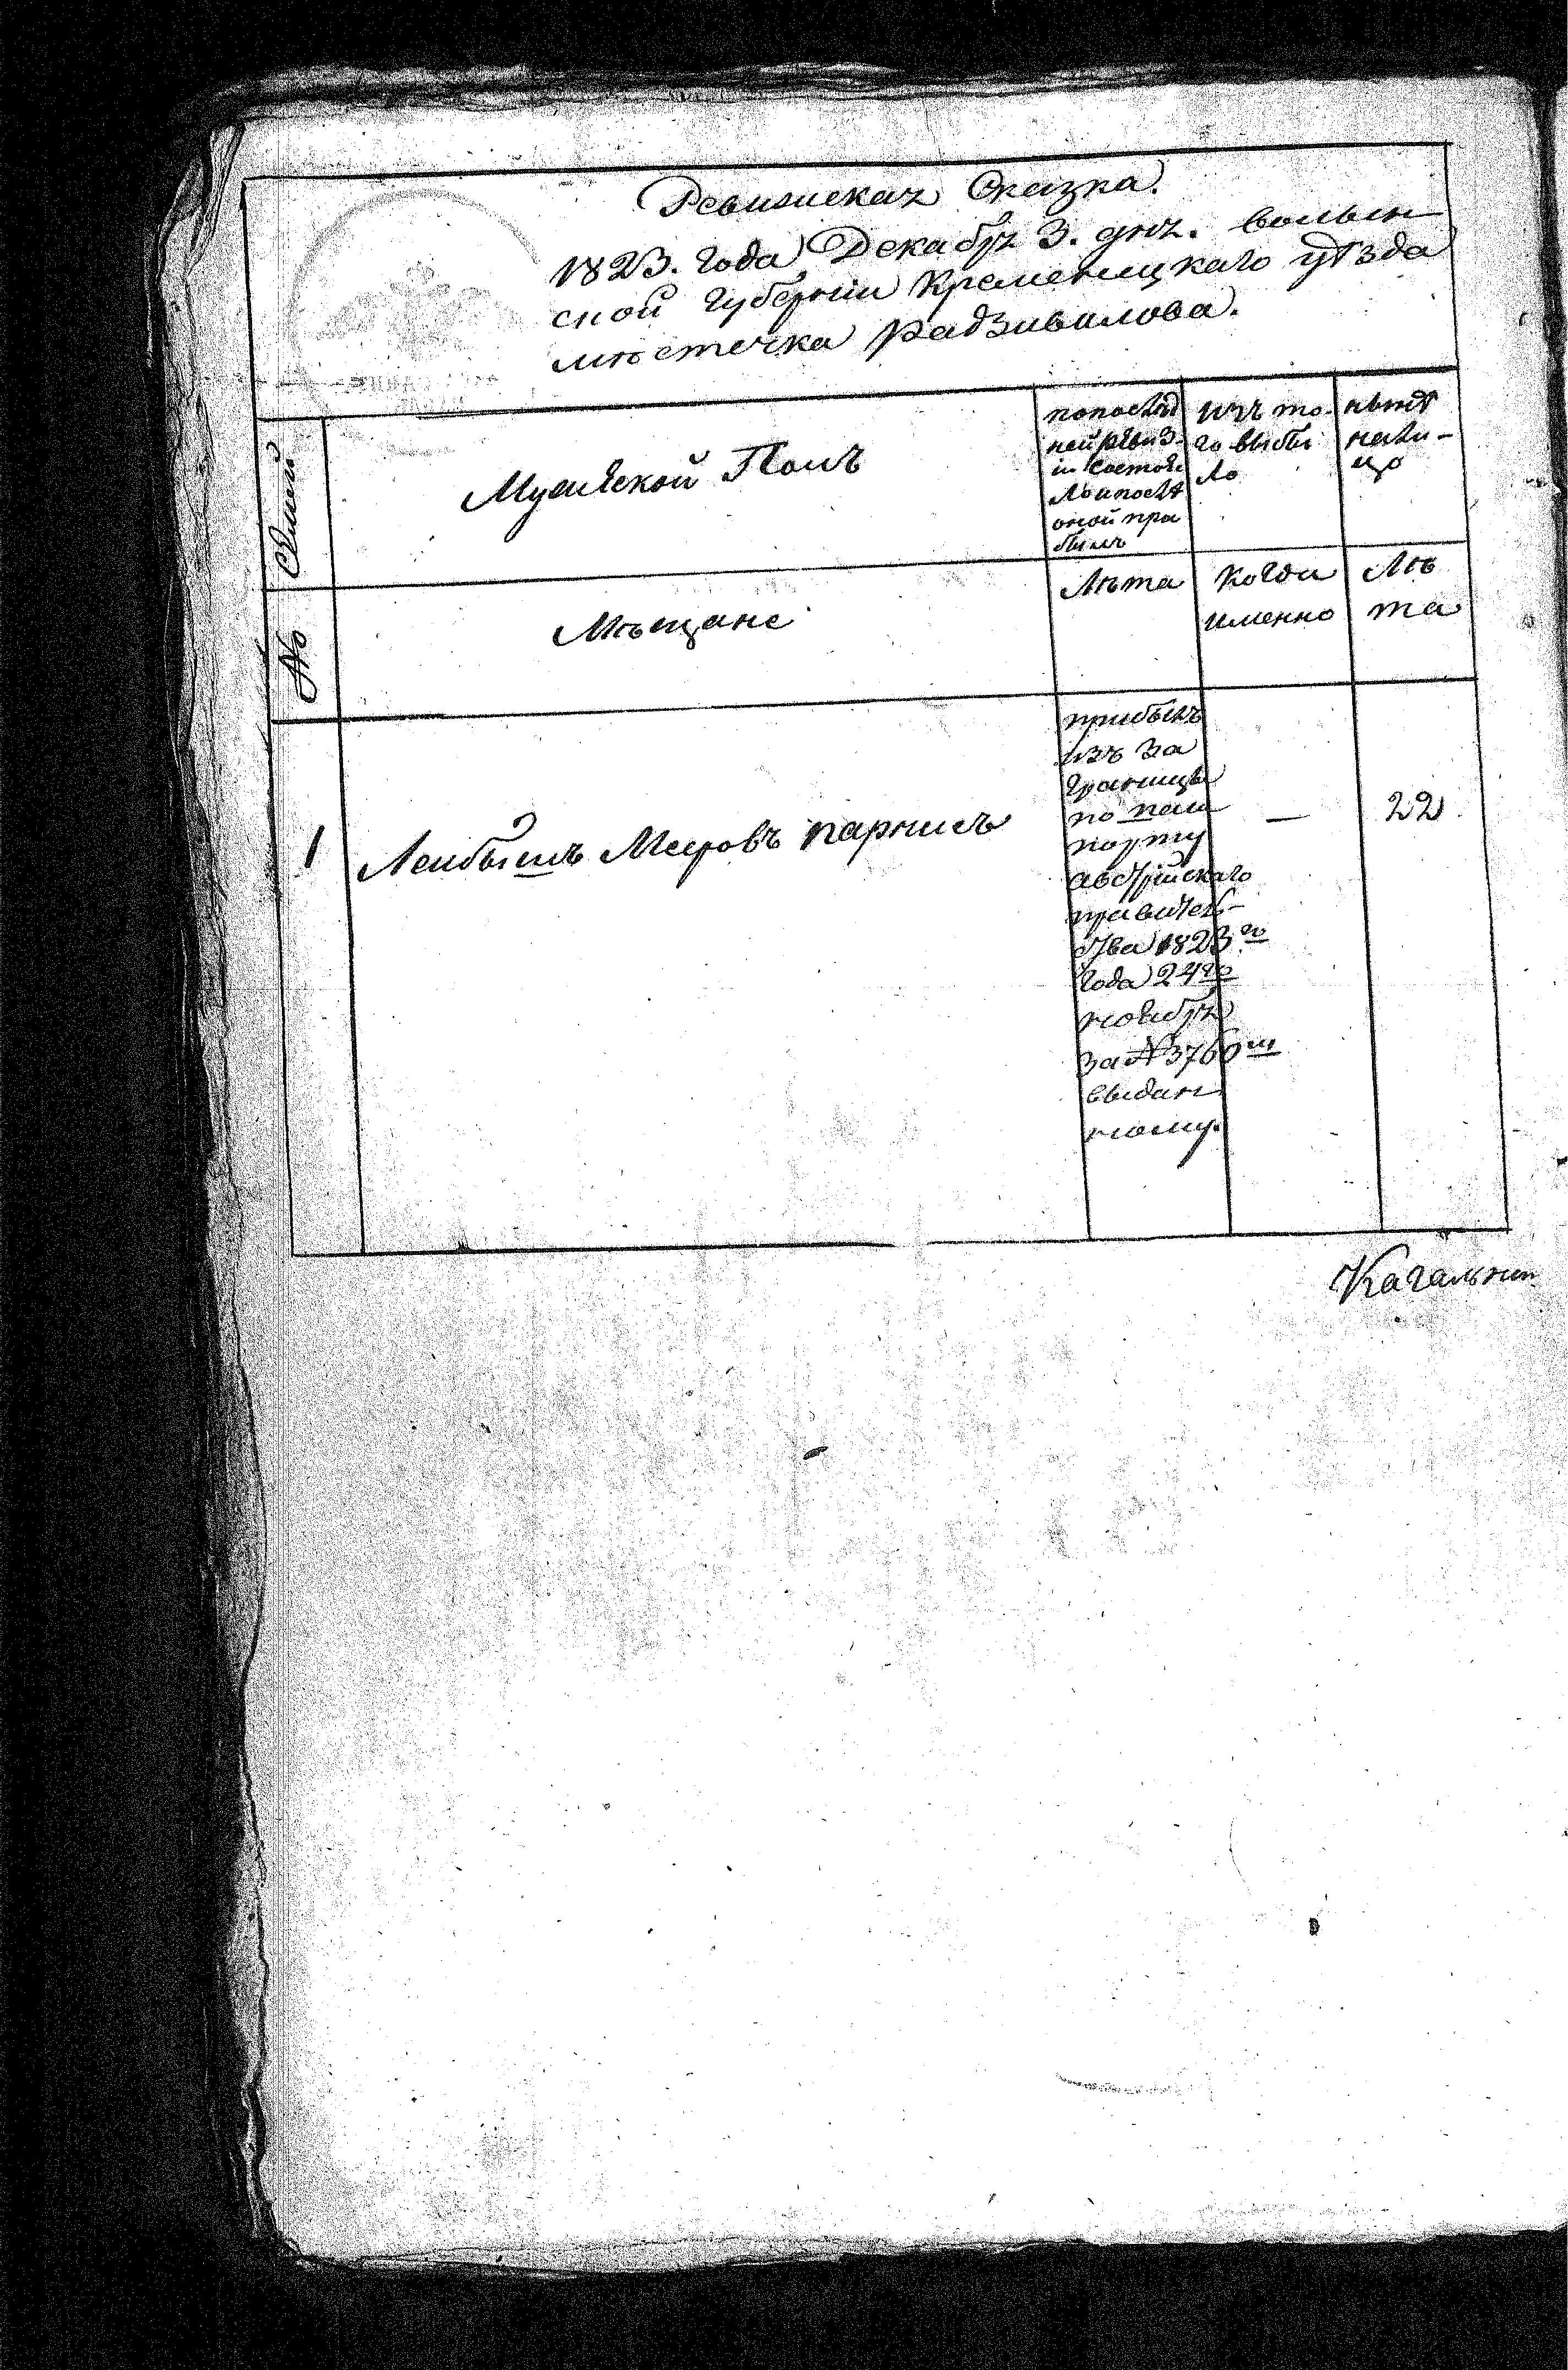 Ревижская Сказка.
1823. Года Декабря 3. дня. волын
ской Губернии Кременецкаго уѣзда
мѣстечка Радзивилова.
Семьи
Мужеской Полъ
попослѣд
ней ревиз
іи состоя
ло и послѣ
оной при
былъ
изъ то-
го выбы
ло
нынѣ
нали-
цо
№
Мѣщане
Лѣта
Когда
именно
Лѣ
та
1
Лейбышъ Меровъ парнисъ
прибылъ
изъ за
границы
по паш
порту
австрійскаго
правитель-
ства 1823го
года 24го
ноября
за №3760м
выдан
ному.
—
22
Кагальни